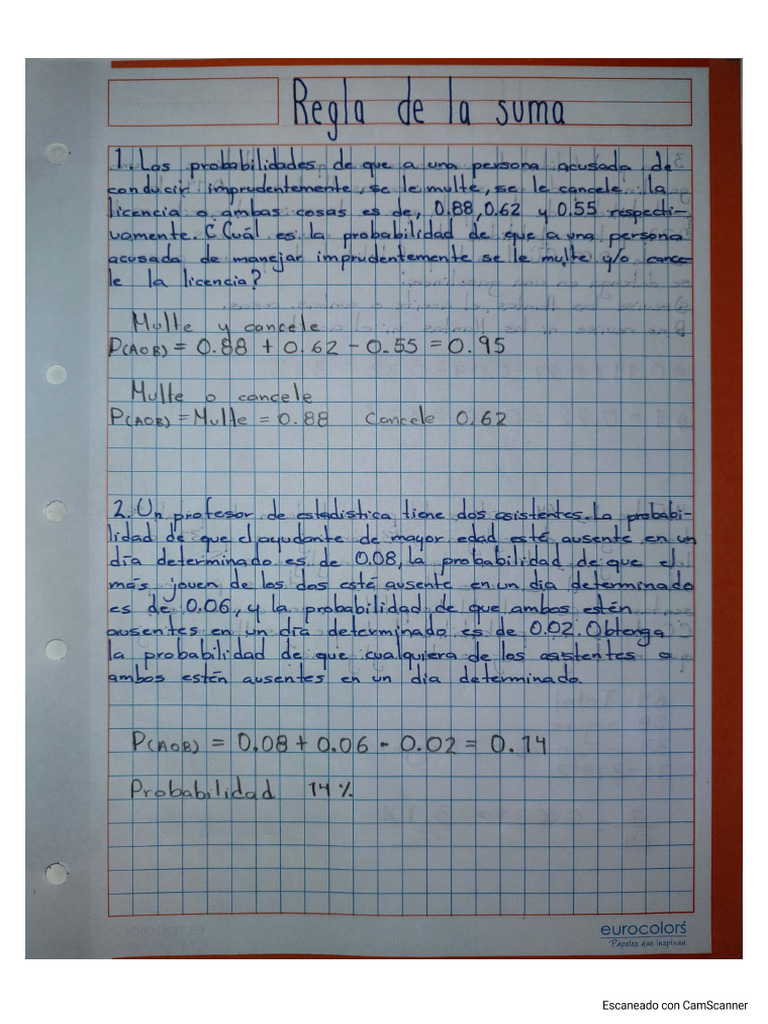 Regla de la suma
1. Las probabilidades de que a una persona acusada de
conducir imprudentemente, se le multe, se le cancele la
licencia o ambas cosas es de, 0.88, 0.62 y 0.55 respecti-
vamente. ¿Cuál es la probabilidad de que a una persona
acusada de manejar imprudentemente se le multe y/o cance
le la licencia?
Multe y cancele
P(AOB) = 0.88 + 0.62 - 0.55 = 0.95
Multe o cancele
P(AOB) = Multe = 0.88 Cancele 0.62
2. Un profesor de estadística tiene dos asistentes. La probabi-
lidad de que el ayudante de mayor edad esté ausente en un
día determinado es de 0.08, la probabilidad de que el
más joven de los dos esté ausente en un dia determinado
es de 0.06, y la probabilidad de que ambos estén
ausentes en un día determinado es de 0.02. Obtenga
la probabilidad de que cualquiera de los asistentes o
ambos estén ausentes en un dia determinado.
P(AOB) = 0.08 + 0.06 - 0.02 = 0.14
Probabilidad 14%
eurocolors
Papeles que inspiran
Escaneado con CamScanner